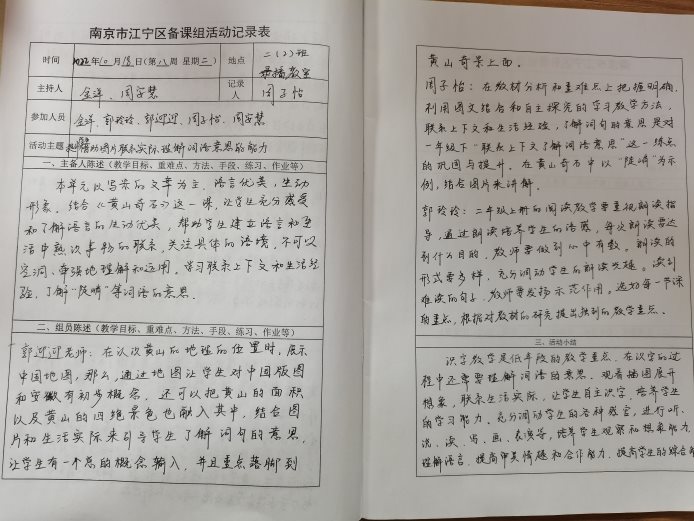 南京市江宁区备课组活动记录表
时间 2022年10月18日(第八周 星期二) 地点 二(2)班
录播教室
主持人 金洋、周安慧 记录人 周子怡
参加人员 金洋、郭玲玲、郭迎迎、周子怡、周安慧
活动主题 借助图片联系实际理解词语意思的能力
一、主备人陈述(教学目标、重难点、方法、手段、练习、作业等)
本单元以写景的文章为主,语言优美,生动
形象。结合《黄山奇石》这一课,让学生充分感受
和了解语言的生动优美,帮助学生建立语言和生
活中熟识事物的联系,关注具体的语境,不可以
空洞、牵强地理解和运用。学习联系上下文和生活经
验,了解“陡峭”等词语的意思。
二、组员陈述(教学目标、重难点、方法、手段、练习、作业等)
郭迎迎老师:在认识黄山的地理的位置时,展示
中国地图,那么,通过地图让学生对中国版图
和安徽有初步概念。还可以把黄山的面积
以及黄山的四绝景色也融入其中,结合图
片和生活实际来引导学生了解词句的意思,
让学生有一个总的概念输入,并且重点落脚到
黄山奇景上面。
周子怡:在教材分析和重难点上把握明确,
利用图文结合和自主探究的学习教学方法,
联系上下文和生活经验,了解词句的意思是对
一年级下“联系上下文了解词语意思”这一练点
的巩固与提升。在黄山奇石中以“陡峭”为示
例,结合图片来讲解。
郭玲玲:二年级上册的阅读教学要重视朗读指
导,通过朗读培养学生的语感,每次朗读要达
到什么目的,教师要做到心中有数。朗读的
形式要多样,充分调动学生的朗读兴趣。读到
难读的句子,教师要发挥示范作用。选好每一节课
的重点,根据对教材的研究提出找到的教学重点。
三、活动小结
识字教学是低年段的教学重点,在识字的过
程中还需要理解词语的意思。观看插图展开
想象,联系生活实际,让学生自主识字,培养学生
的学习能力。充分调动学生的各种感官,进行听、
说、读、写、画、表演等,培养学生观察和想象能力,
理解语言,提高审美情趣和合作能力,提高学生的综合